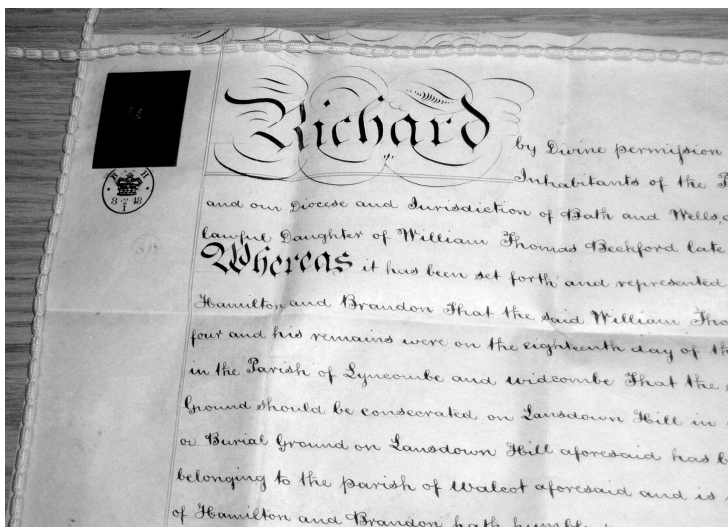 Richard by Divine permission
Inhabitants of the P
and our Diocese and Jurisdiction of Bath and Wells,
lawful Daughter of William Thomas Beckford late
Whereas it has been set forth and represented
Hamilton and Brandon That the said William Tho
four and his remains were on the eighteenth day of th
in the Parish of Lyncombe and widcombe That the
Ground should be consecrated on Lansdown Hill in
or Burial Ground on Lansdown Hill aforesaid has b
belonging to the parish of Walcot aforesaid and is
of Hamilton and Brandon hath humbl